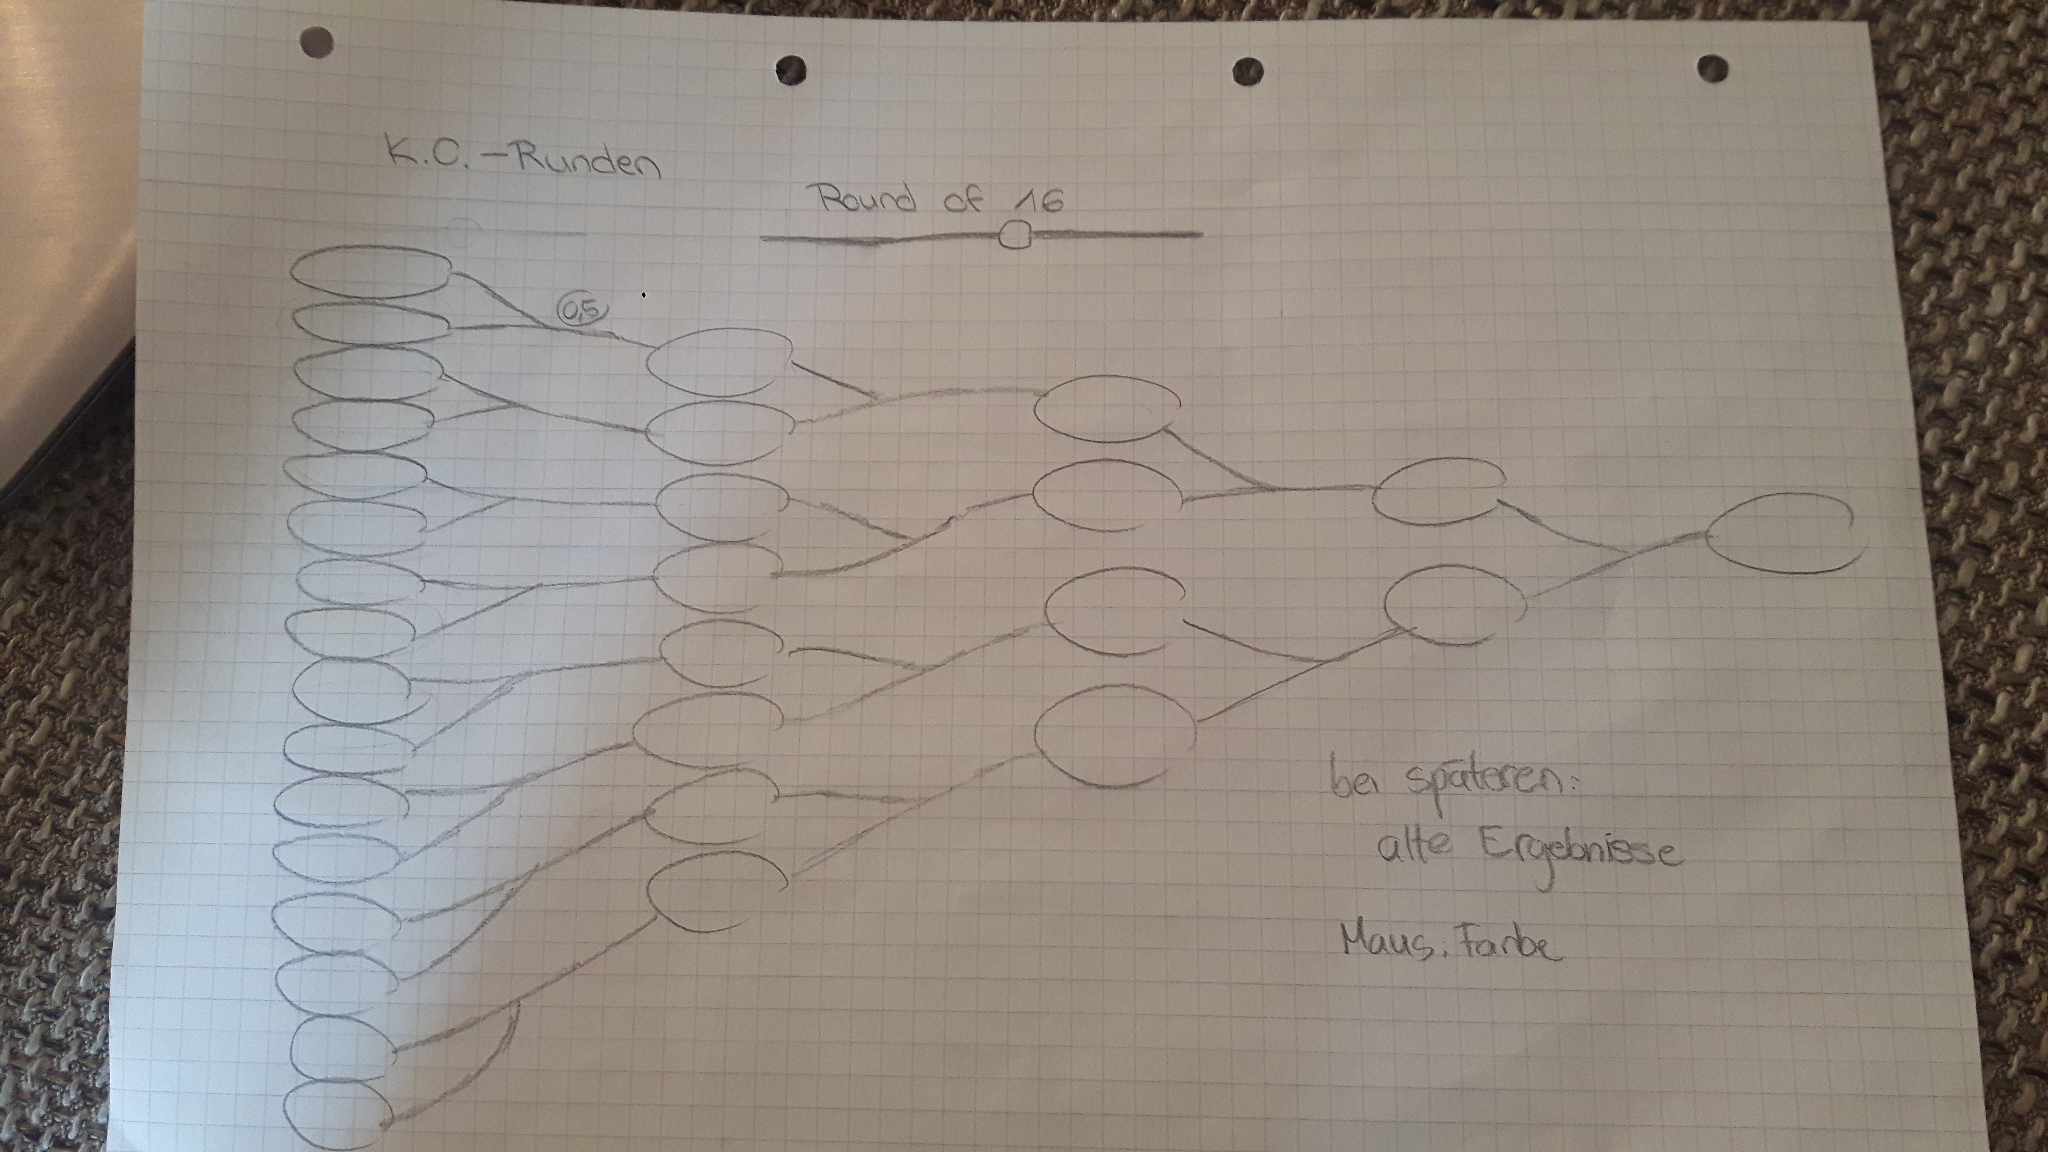 K.O.-Runden
Round of 16
0,5
bei späteren:
alte Ergebnisse
Maus: Farbe